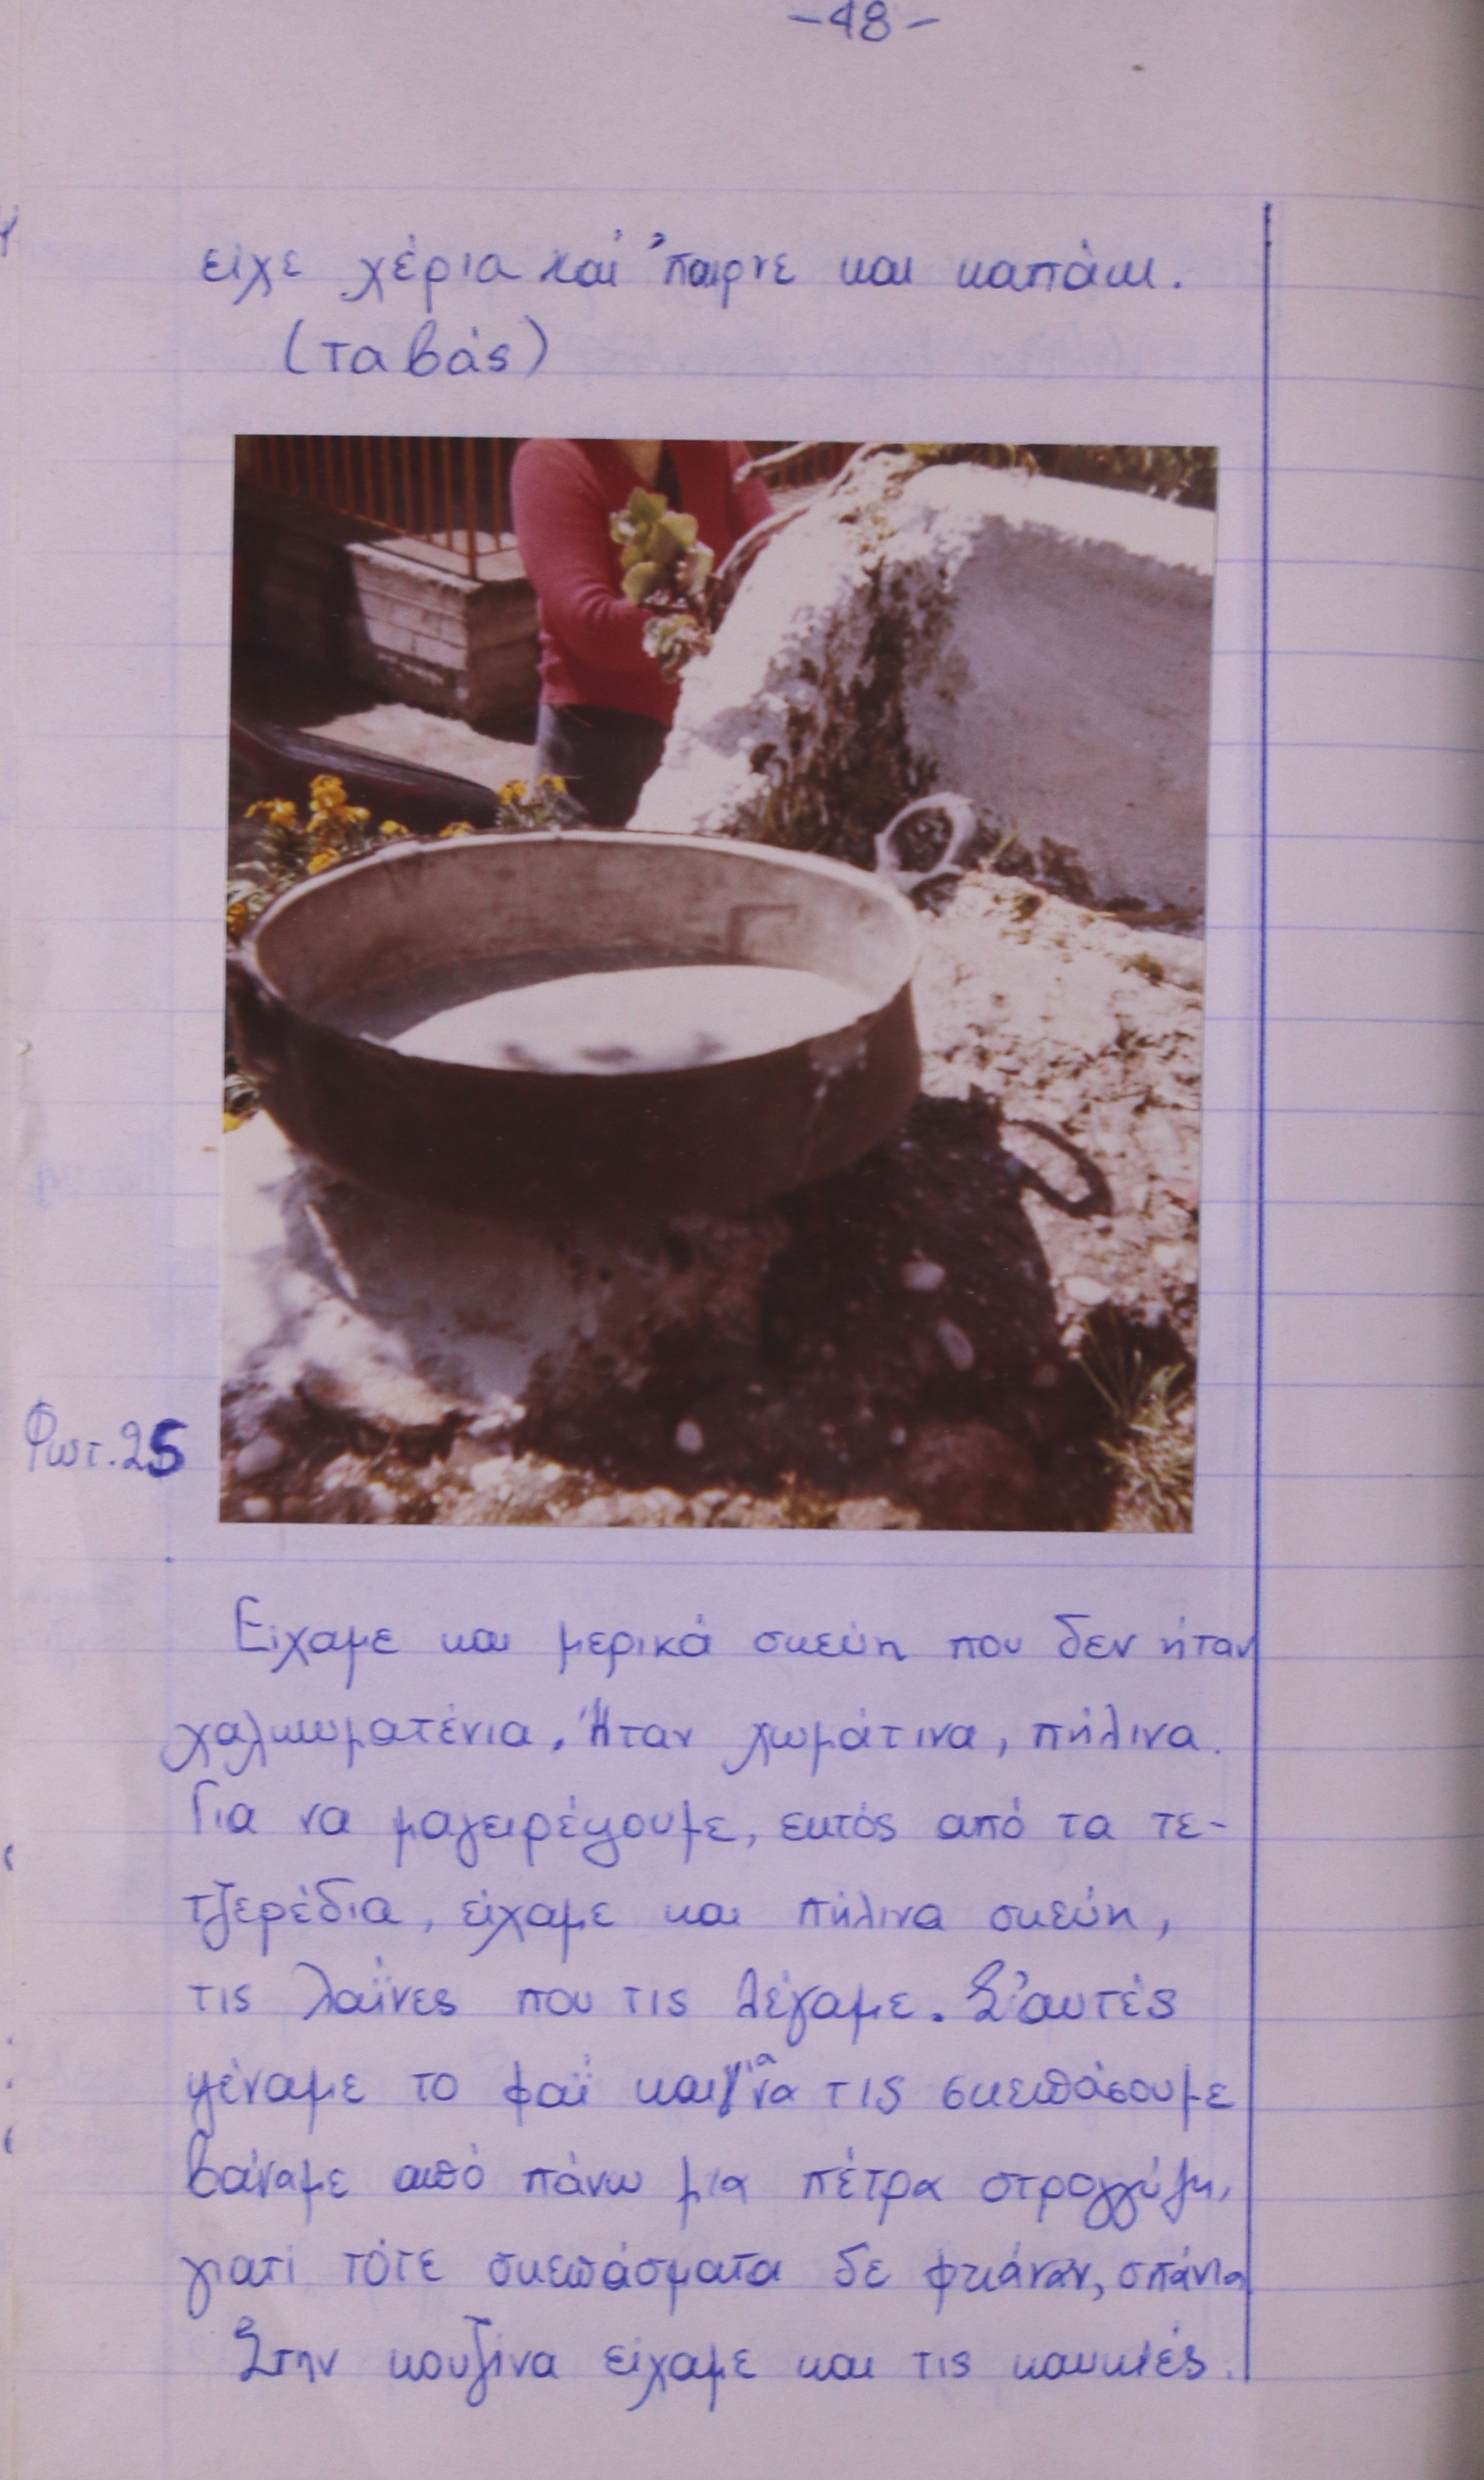 -48-
είχε χέρια καί 'παιρνε και καπάκι.
(ταβάς)
Φωτ.25
Είχαμε και μερικά σκεύη που δεν ήταν
χαλκωματένια. Ήταν χωμάτινα, πήλινα.
Για να μαγειρέψουμε, εκτός από τα τε-
τζερέδια, είχαμε και πήλινα σκεύη,
τις λαΐνες που τις λέγαμε. Σ'αυτές
ψέναμε το φαΐ και για να τις σκεπάσουμε
βάναμε από πάνω μια πέτρα στρογγύλη,
γιατί τότε σκεπάσματα δε φκιάναν, σπάνια
Στην κουζίνα είχαμε και τις καυκιές.